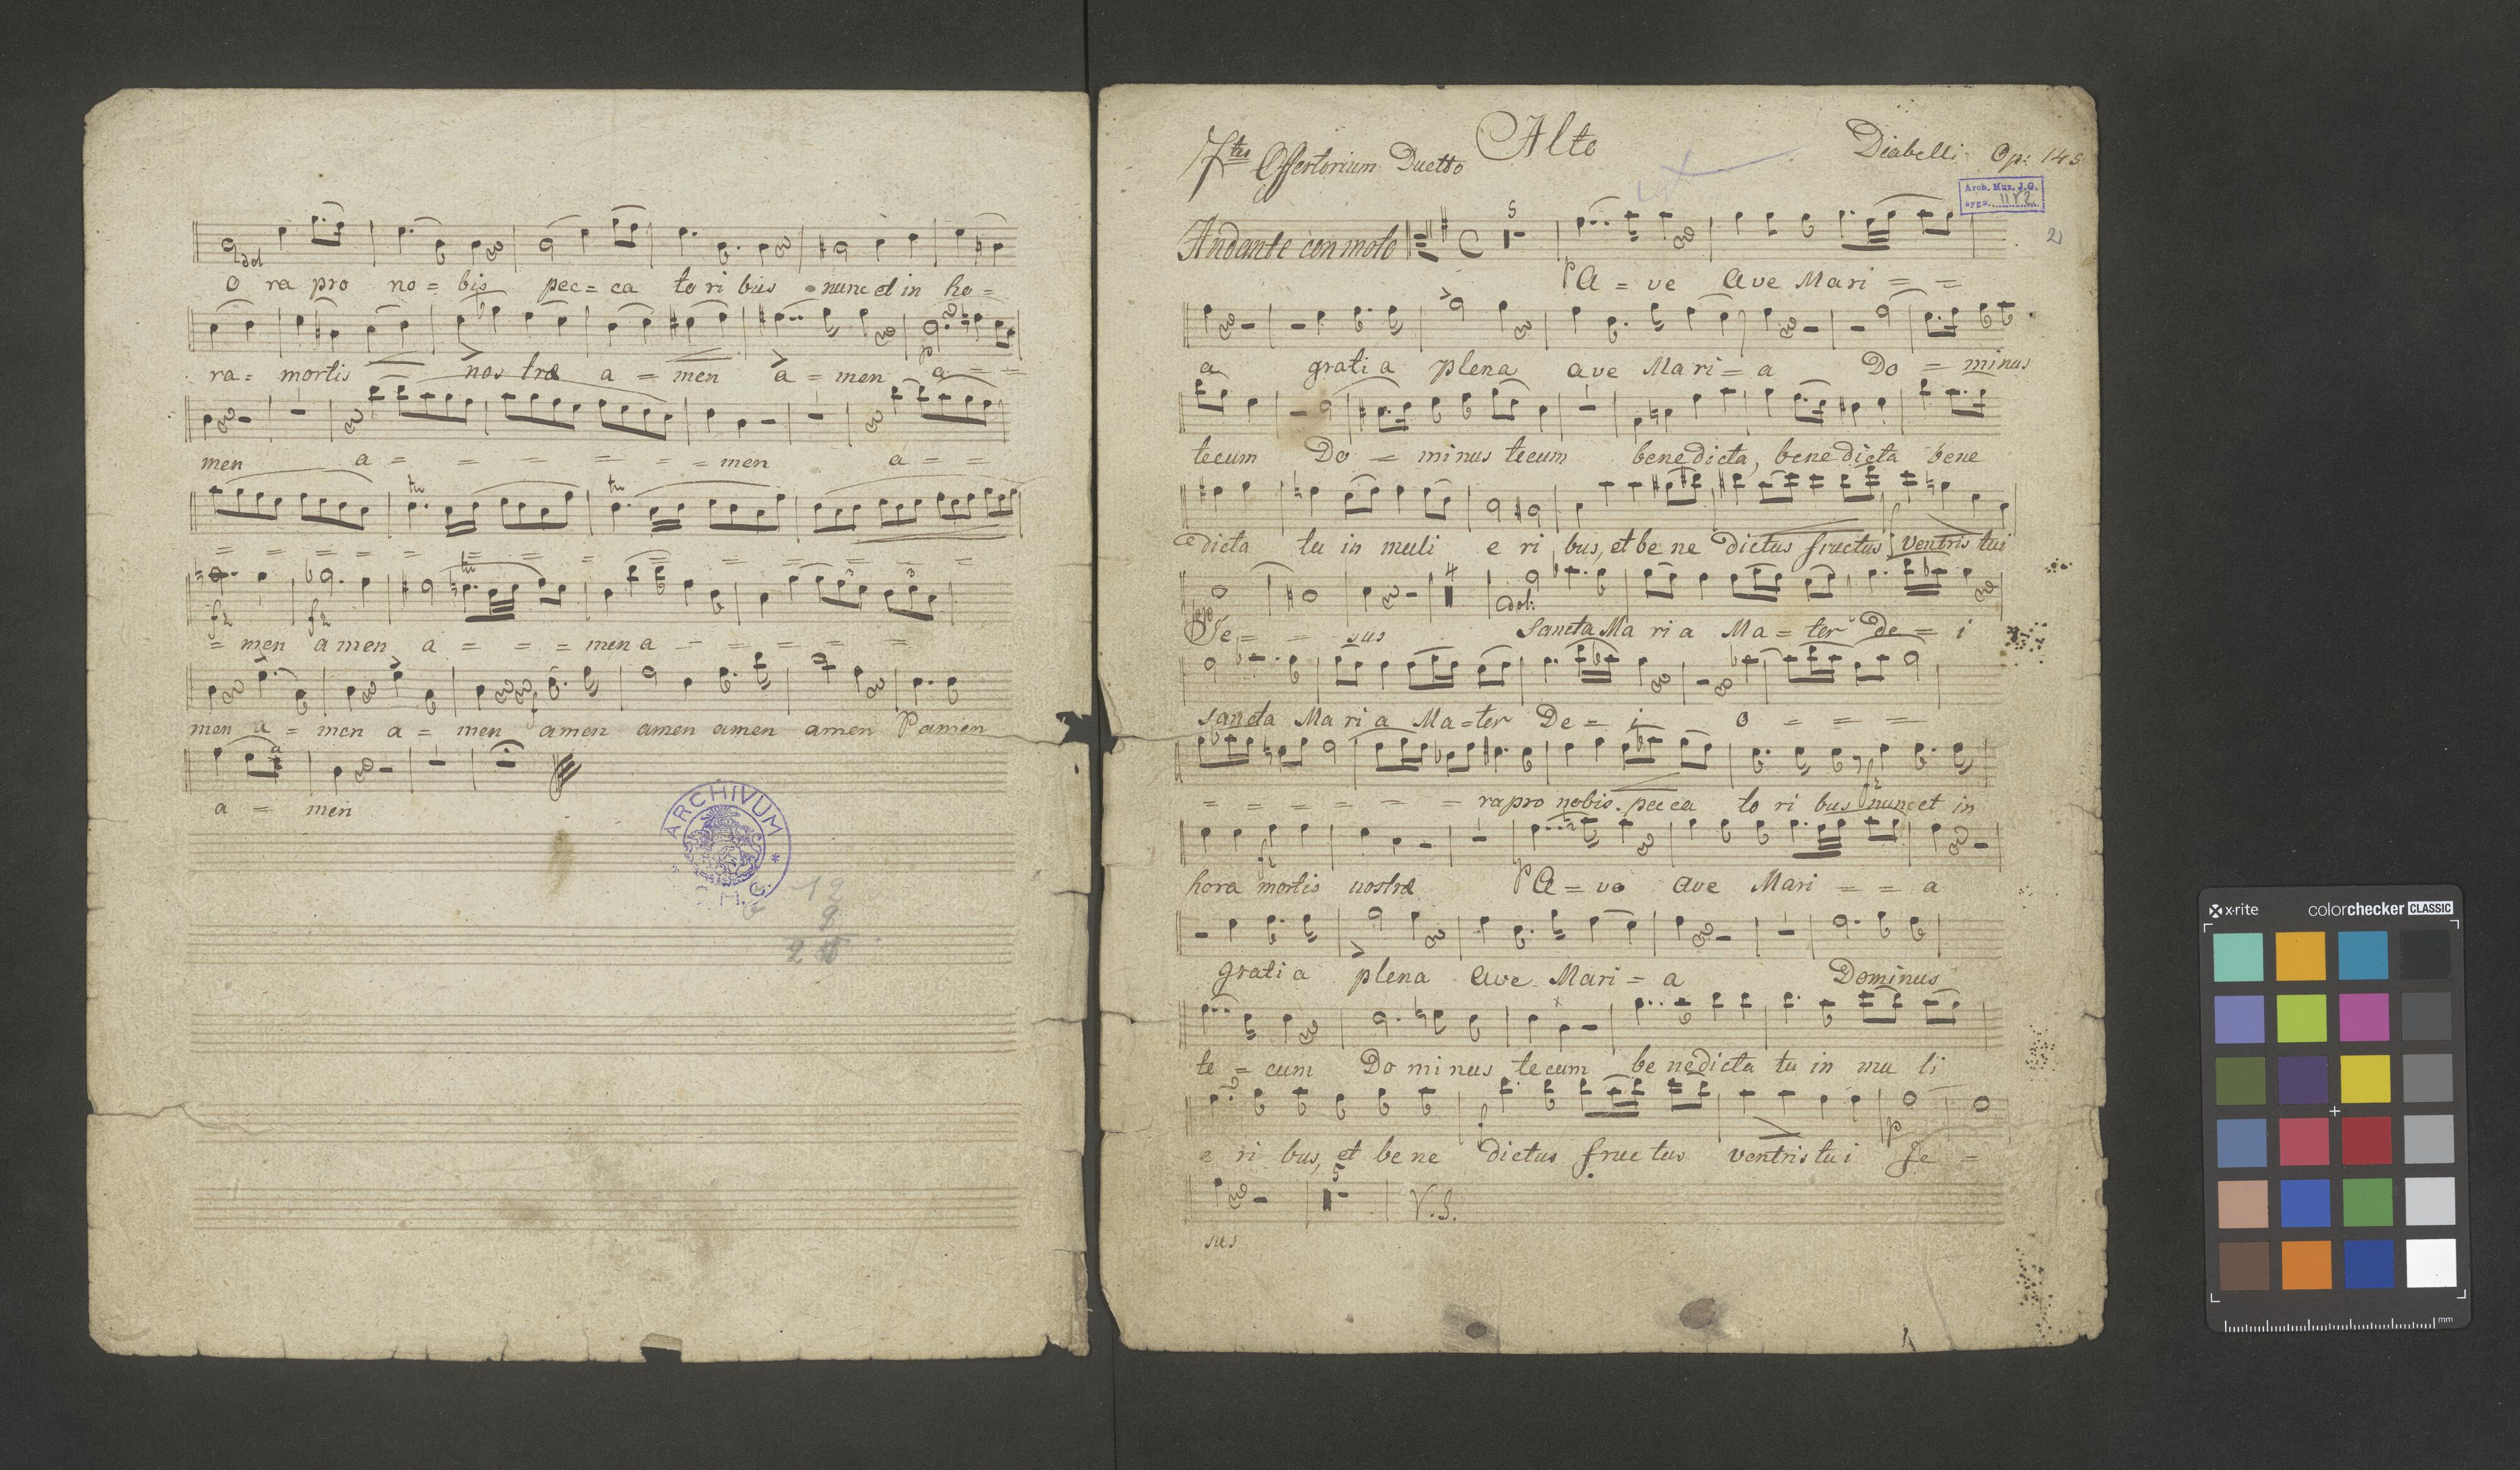 dol
O ra pro no = bis pec = ca to ri bus nunc et in ho =
ra = mortis nos træ a = men a = men a = =
men a = = = = = = men a = =
tr tr
= = = = = = = = = = =
= men amen a = = = men a = = = = =
men a = men a = men amen amen amen amen P amen
a = men
ARCHIVUM
12
9
7tes Offertorium Duetto Alto Diabelli Op: 145
Arch. Muz. J.G.
sygn. 1172
2
Andante con moto 5
P A = ve Ave Mari = =
a gratia plena ave Mari = a Do = minus
tecum Do = minus tecum benedicta, benedicta bene
dicta tu in muli e ri bus, et be ne dictus fructus ventris tui
4
dol:
Je = = sus Sancta Ma ri a Ma = ter De = i
sancta Ma ri a Ma = ter De = i o = = =
= = = = = = ra pro nobis pecca to ri bus nunc et in
hora mortis nostræ P A = ve ave Mari = = a
gratia plena Ave Mari = a Dominus
te = cum Do mi nus tecum be nedicta tu in mu li
p
e ri bus, et be ne dictus fructus ventris tui Je =
5
V.S.
sus
x·rite colorchecker CLASSIC
mm